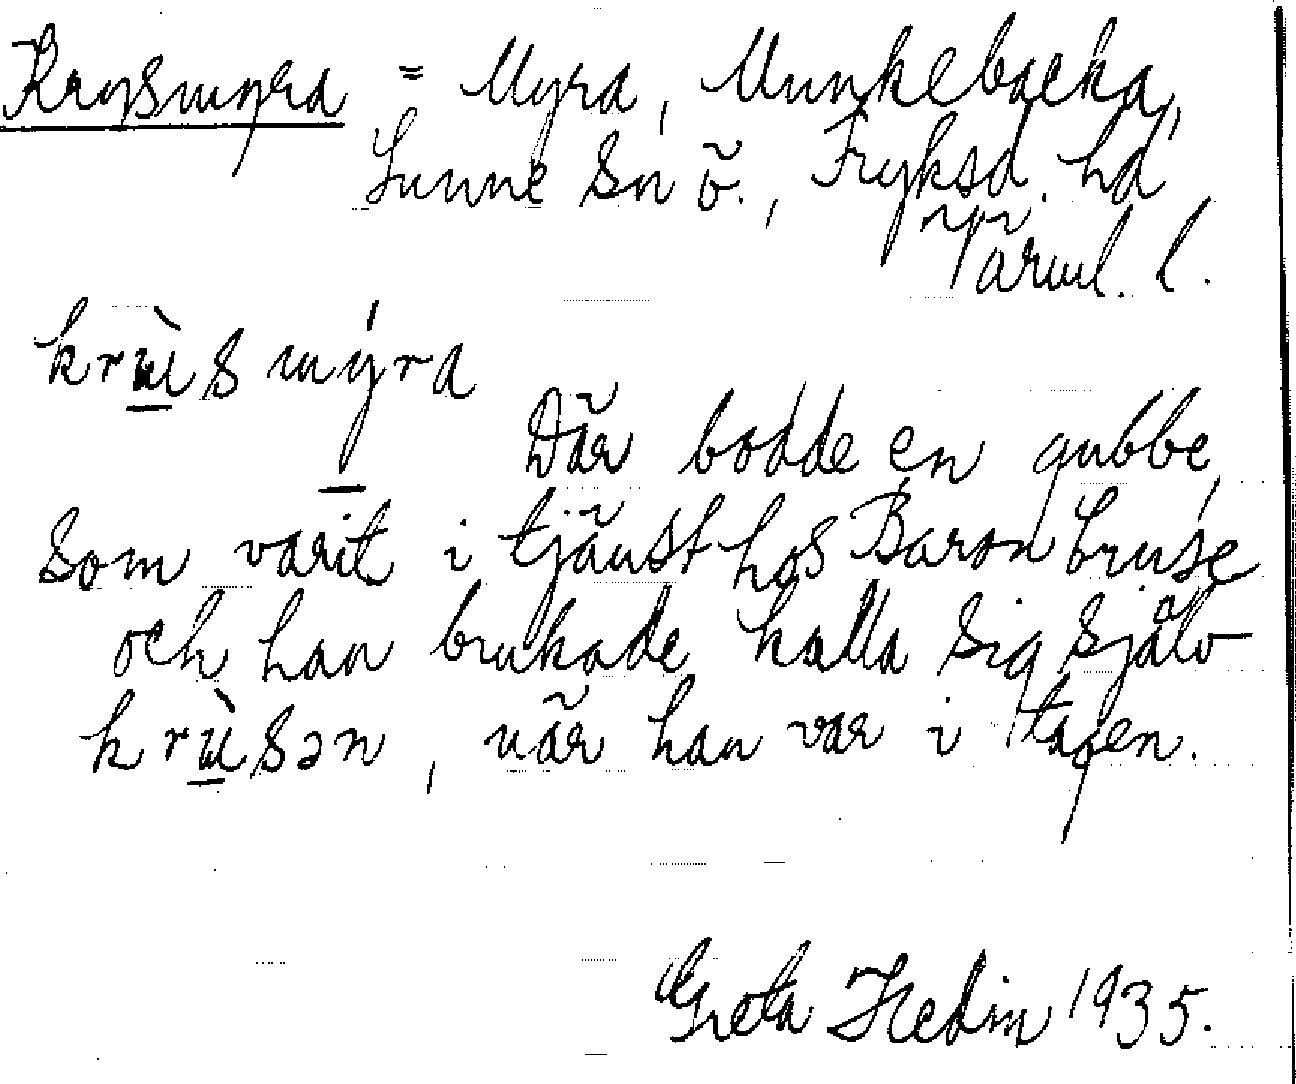 Krysmyra = Myra, Munkebacka,
Sunne sn ö., Fryksd. hd
Värml. l.
krùsmýra
Där bodde en gubbe,
som varit i tjänst hos Baron Cruse
och han brukade kalla sig själv
krùsən, när han var i tagen.
Greta Hedin 1935.